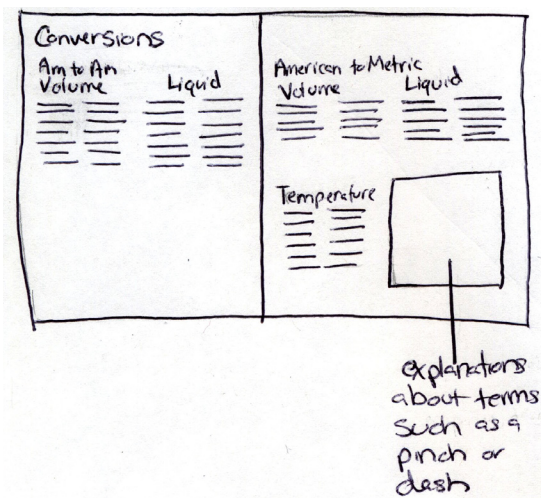 Conversions
Am to Am
Volume
Liquid
American to Metric
Volume
Liquid
Temperature
explanations
about terms
such as a
pinch or
dash